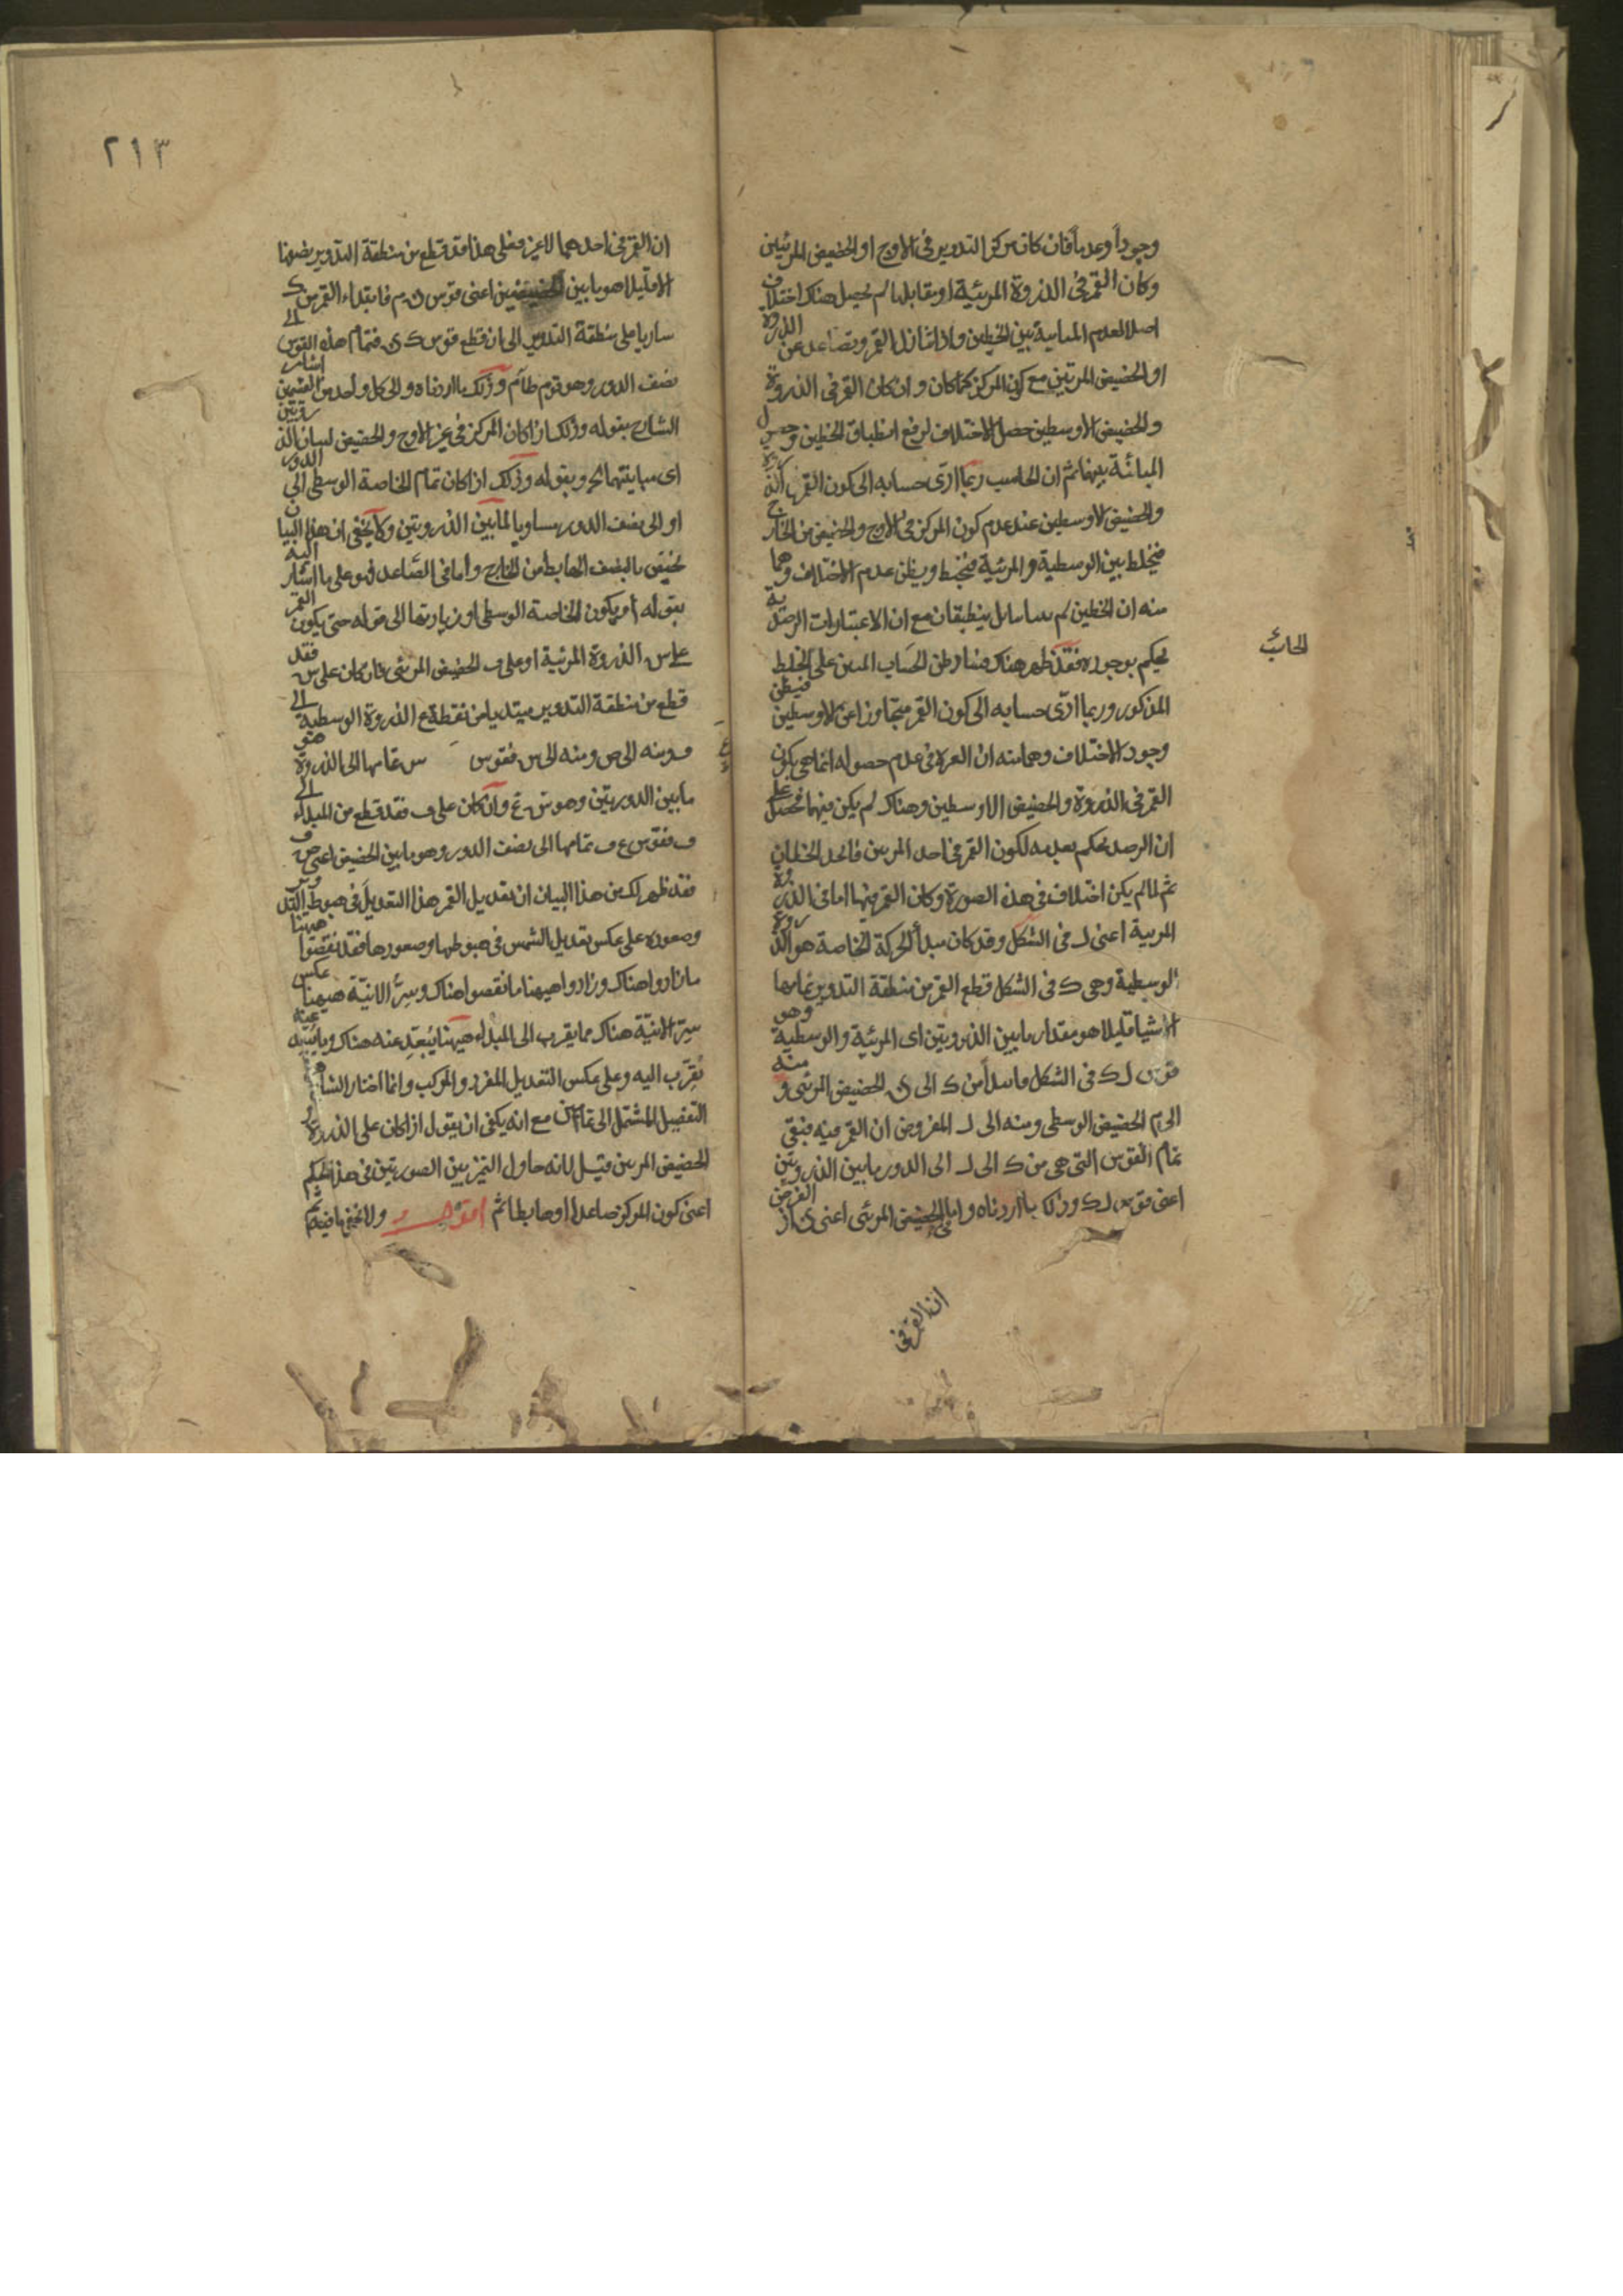 وجوداً وعدماً فان كان مركز التدوير فى الاوج او الحضيض المرئيين
وكان القمر فى الذروة المرئية او مقابلها لم يحصل هناك اختلاف
اصلا لعدم المباينة بين الخطين واذا تنازل القمر وتصاعد عن الذروة
او الحضيض المرئيين مع كون المركز كما كان وان كان القمر فى الذروة
والحضيض الاوسطين حصل الاختلاف لرفع انطباق الخطين وحصول
المباينة بينهما ثم ان الحاسب ربما ادى حسابه الى كون القمر
والحضيض الاوسطين عند عدم كون المركز فى الاوج والحضيض من الخارج
فيخلط بين الوسطية والمرئية فيخبط ويظن عدم الاختلاف وهما
منه ان الخطين لم بل ينطبقان مع ان الاعتبارات الرصدية
يحكم بوجوده فقد ظهر هناك فساد ظن الحساب على الخلط
المذكور وربما ادى حسابه الى كون القمر متجاوزا عن الاوسطين فيظن
وجود الاختلاف وهما منه ان العبرة فى عدم حصوله انما هى بكون
القمر فى الذروة والحضيض الاوسطين وهناك لم يكن فيهما فحصل على
ان الرصد يحكم بعدمه لكون القمر فى احد المرئيين فاتحد الخطان
ثم لما لم يكن اختلاف فى هذه الصورة وكان القمر فيها اما فى الذروة
المرئية اعنى ل فى الشكل وقد كان مبدأ الحركة الخاصة هو الذروة
الوسطية وهى ك فى الشكل قطع القمر من منطقة التدوير تمامها
الا شيا قليلا هو مقدار ما بين الذروتين اى المرئية والوسطية وهو
قوس ل ك فى الشكل من ك الى ى الحضيض المرئى ومنه
الى م الحضيض الوسطى ومنه الى ل المفروض ان القمر فيه فبقى
تمام القوس التى هى من ك الى ل الى الدور ما بين الذروتين
اعنى قوس ل ك وذلك ما اردناه واما فى الحضيض المرئى اعنى ى اذ الفرض
ان القمر فى
الحاسب
٢١٣
ان القمر فى احدهما لا غير فعلى هذا قد قطع من منطقة التدوير نصفها
الا قليلا هو ما بين الحضيضين اعنى قوس ى م فابتداء القمر من ك
ساريا على منطقة التدوير الى ان قطع قوس ك ى فتمام هذه القوس الى
نصف الدور وهو قوم وذلك ما اردناه والى كل واحد من القسمين اشار
الشارح بقوله وذلك اذا كان المركز فى غير الاوج والحضيض لبيان الذروتين
اى مباينتهما وبقوله وذلك اذا كان تمام الخاصة الوسطى الى الدور
او الى نصف الدور مساويا لما بين الذروتين ولا يخفى ان هذا البيان
يختص بالنصف الهابط من الخارج واما فى الصاعد فهو على ما اشار اليه
بقوله او يكون الخاصة الوسطى او زيادتها الى قوله حتى يكون القمر
على س الذروة المرئية او على ف الحضيض المرئى فان كان على س فقد
قطع من منطقة التدوير مبتديا من نقطة ع الذروة الوسطية الى
ف ومنه الى ص ومنه الى س فقوس س تمامها الى الذروة
ما بين الذروتين وهو س ع وان كان على ف فقد قطع من المبدأ الى
ف فقوس ع ف تمامها الى نصف الدور وهو ما بين الحضيض اعنى ص ف
فقد ظهر لك من هذا البيان ان تعديل القمر هذا التعديل فى هبوط التدوير
وصعوده على عكس تعديل الشمس فى هبوطها وصعودها فقد نقصوا ههنا
ما زادوا هناك وزادوا ههنا ما نقصوا هناك وسر الانية ههنا عكس
سر الانية هناك مما يقرب الى المبداء ههنا يبعد عنه هناك وما يبعد عنه
يقرب اليه وعلى عكس التعديل المفرد والمركب وانما اختار الشارح
التفصيل المشتمل الى مع انه يكفى ان يقول اذا كان على الذروة و
الحضيض المرئيين قيل لانه حاول التميز بين الصورتين فى هذا الحكم
اعنى كون المركز صاعدا او هابطا ثم اقول ولا يخفى ما فيه ثم